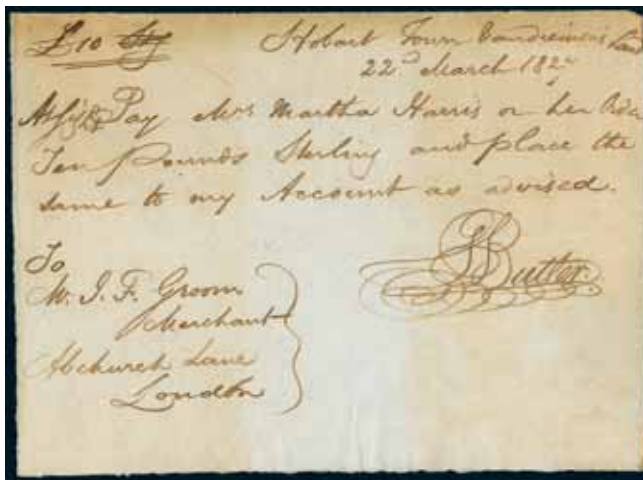 £10 Stg Hobart Town Vandiemens Land
22d March 182
At Sight Pay Mrs Martha Harris or her Order
Ten Pounds Sterling and place the
same to my Account as advised.
To
Mr. J. F. Groom
Merchant
Abchurch Lane
London
Butler